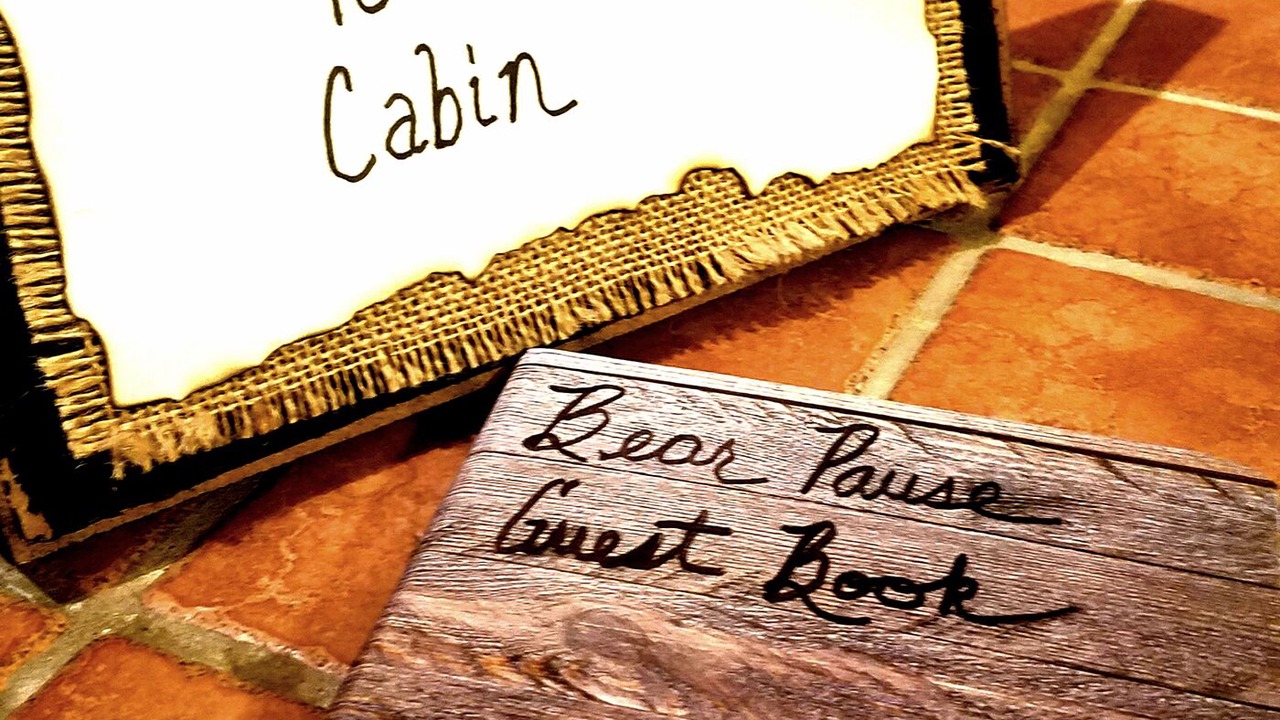 Cabin
Bear Pause
Guest Book